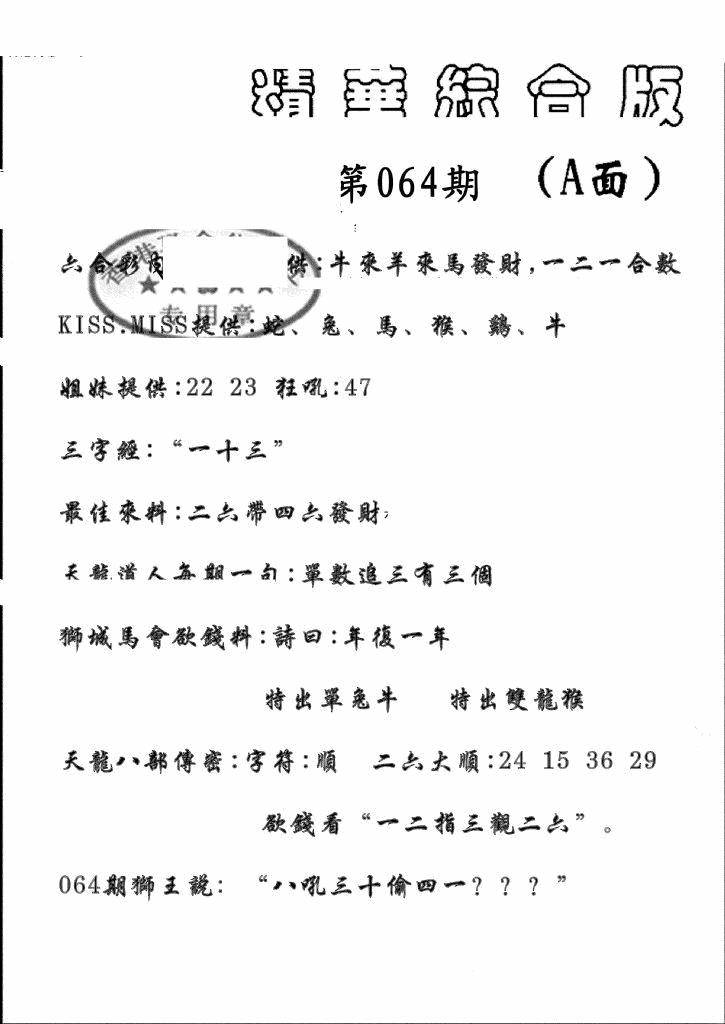 精華綜合版
第064期 (A面)
六合彩 供:牛來羊來馬發財,一二一合數
KISS.MISS提供:蛇、兔、馬、猴、鷄、牛
姐妹提供:22 23 狂吼:47
三字經:“一十三”
最佳來料:二六帶四六發財,
天龍道人每期一句:單數追三有三個
獅城馬會欲錢料:詩曰:年復一年
特出單兔牛 特出雙龍猴
天龍八部傳密:字符:順 二六大順:24 15 36 29
欲錢看“一二指三觀二六”。
064期獅王説: “八吼三十偷四一???”
专用章